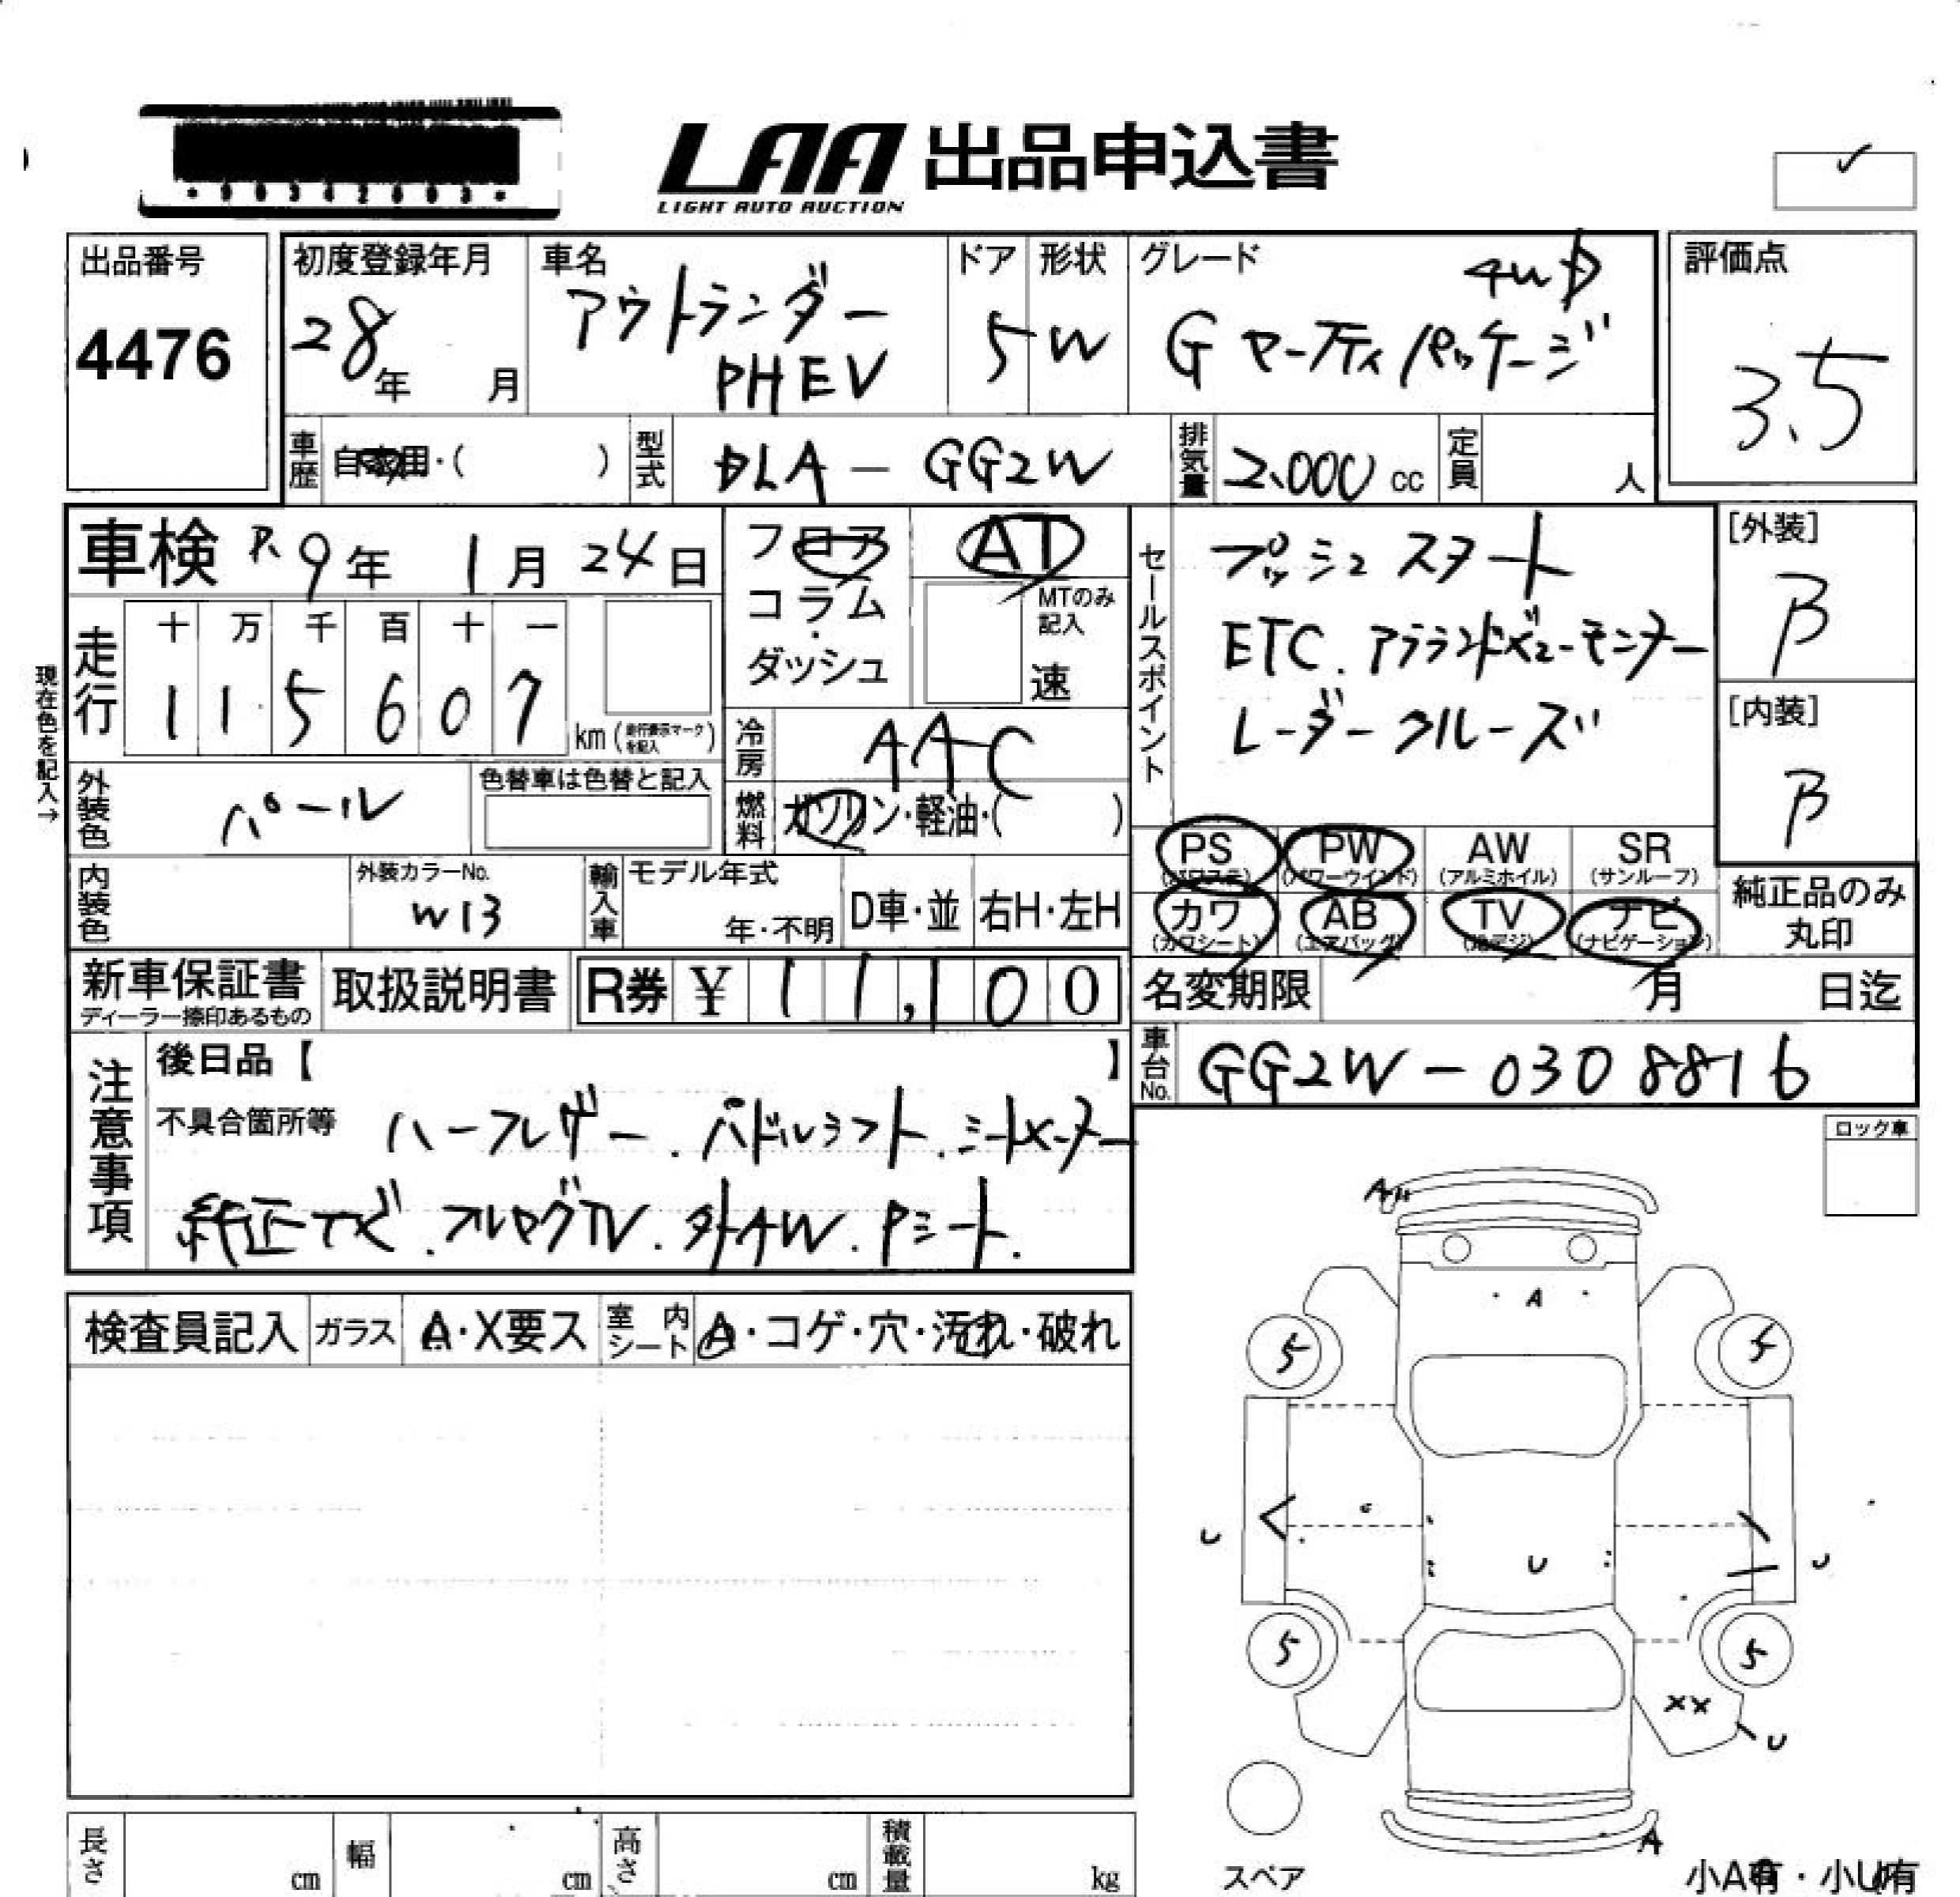 LAA 出品申込書
LIGHT AUTO AUCTION
出品番号
4476
初度登録年月
28年 月
車名
アウトランダー
PHEV
ドア
5
形状
W
グレード
4WD
G セーフティパッケージ
評価点
3.5
車歴
自家用・( )
型式
DLA - GG2W
排気量
2.000 cc
定員
人
車検 R.9年 1月 24日
フロア
コラム
・
ダッシュ
AT
MTのみ
記入
速
セールスポイント
プッシュスタート
ETC. アラウンドビューモニター
レーダークルーズ
[外装]
B
[内装]
B
現在色を記入→
走行
十 万 千 百 十 一
1 1 5 6 0 7
km (走行表示マークを記入)
冷房
AAC
外装色
パール
色替車は色替と記入
燃料
ガソリン・軽油・( )
PS
(パワステ)
PW
(パワーウインド)
AW
(アルミホイル)
SR
(サンルーフ)
カワ
(カワシート)
AB
(エアバッグ)
TV
(地デジ)
ナビ
(ナビゲーション)
純正品のみ
丸印
内装色
外装カラーNo.
W13
輸入車
モデル年式
年・不明
D車・並
右H・左H
新車保証書
ディーラー捺印あるもの
取扱説明書
R券 ¥ 11,100
名変期限
月 日迄
車台No.
GG2W - 0308816
注意事項
後日品【 】
不具合箇所等
ハーフレザー. パドルシフト. シートヒーター
純正ナビ. フルセグTV. 外AW. Pシート.
ロック車
検査員記入
ガラス
A・X要ス
室内シート
A・コゲ・穴・汚れ・破れ
A
A
5
5
U
U
U
5
5
XX
U
A
スペア
小A有・小U有
長さ
cm
幅
cm
高さ
cm
積載量
kg